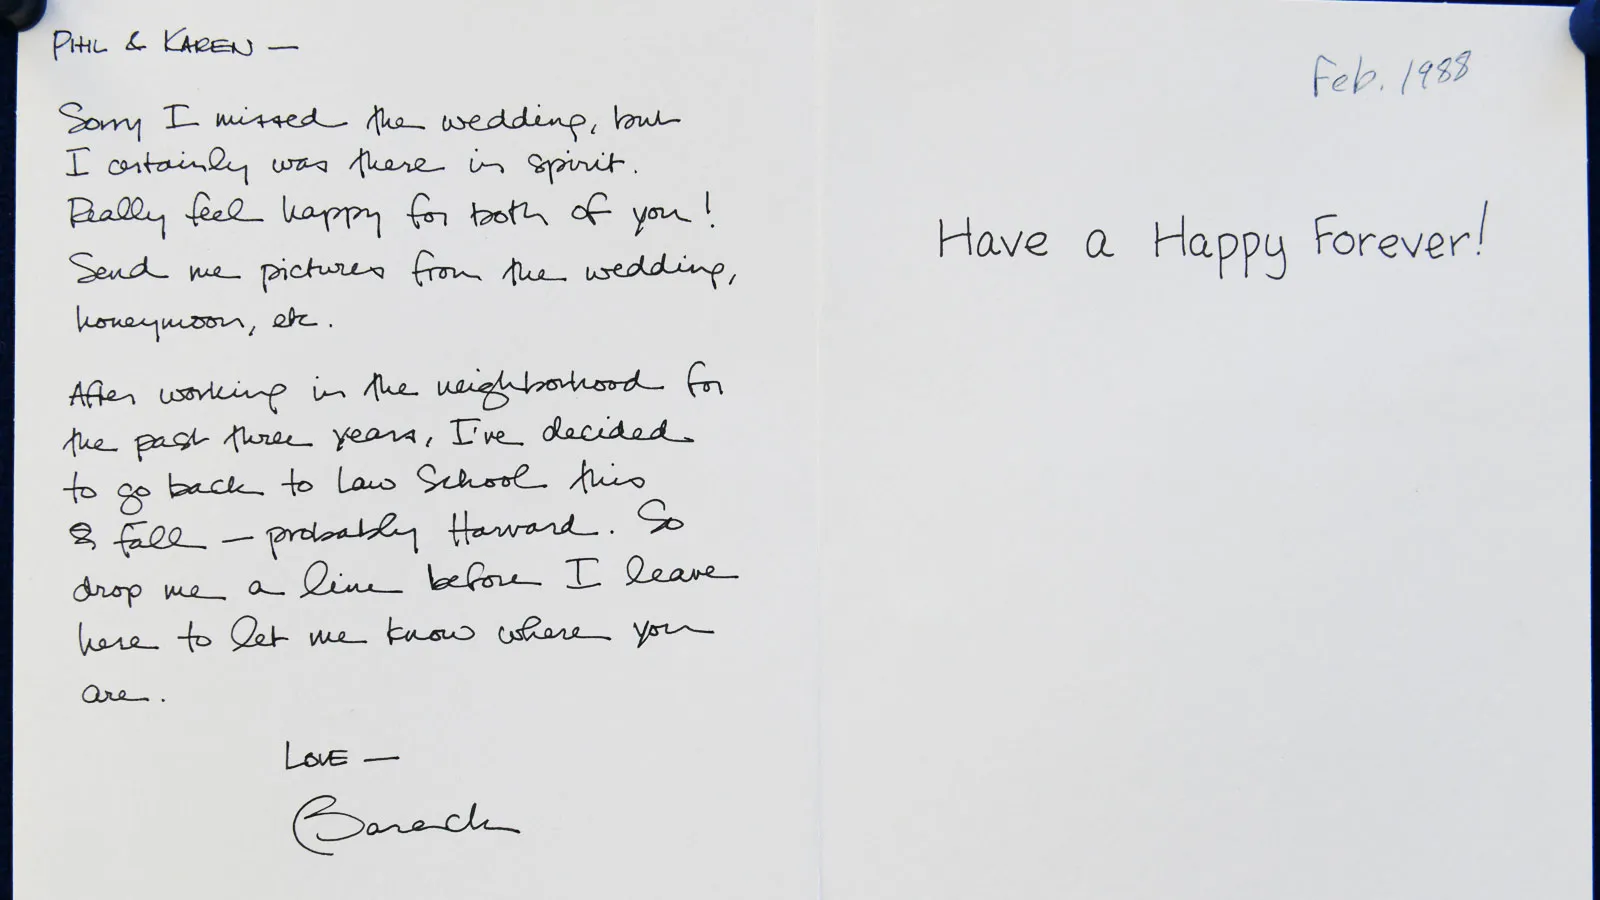 PHIL & KAREN —
Sorry I missed the wedding, but
I certainly was there in spirit.
Really feel happy for both of you!
Send me pictures from the wedding,
honeymoon, etc.
After working in the neighborhood for
the past three years, I've decided
to go back to Law School this
fall — probably Harvard. So
drop me a line before I leave
here to let me know where you
are.
LOVE —
Barack
Feb. 1988
Have a Happy Forever!